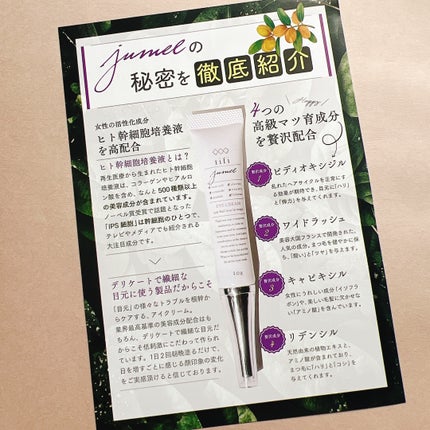 jumelの
秘密を徹底紹介
女性の活性化成分
ヒト幹細胞培養液
を高配合
ヒト幹細胞培養液とは？
再生医療から生まれたヒト幹細胞
培養液は、コラーゲンやヒアルロ
ン酸を含め、なんと500種類以上
の美容成分が含まれています。
ノーベル賞受賞で話題となった
「iPS細胞」は幹細胞のひとつで、
テレビやメディアでも紹介される
大注目成分です。
デリケートで繊細な
目元に使う製品だからこそ
「目元」の様々なトラブルを根幹か
らケアする、アイクリーム。
業界最高基準の美容成分配合はも
ちろん、デリケートで繊細な目元だ
からこそ低刺激にこだわって作られ
ています。1日2回朝晩塗るだけで、
日を増すごとに感じる顔印象の変化
をご実感頂けると信じております。
iifi
jumel
EYE CREAM
10g
Happy
4つの
高級マツ育成分
を贅沢配合
贅沢成分
1
ビディオキシジル
乱れたヘアサイクルを正常にす
る効果が期待でき、目元に「ハリ」
と「弾力」を与えてくれます。
贅沢成分
2
ワイドラッシュ
美容大国フランスで開発された、
人気の成分。まつ毛を健やかに保
ち、「潤い」と「ツヤ」を与えます。
贅沢成分
3
キャピキシル
女性にうれしい成分「イソフラ
ボン」や、美しい毛髪に欠かせな
い「アミノ酸」を含んでいます。
贅沢成分
4
リデンシル
天然由来の植物エキスと、
アミノ酸が含まれており、
まつ毛に「ハリ」と「コシ」を
与えてくれます。